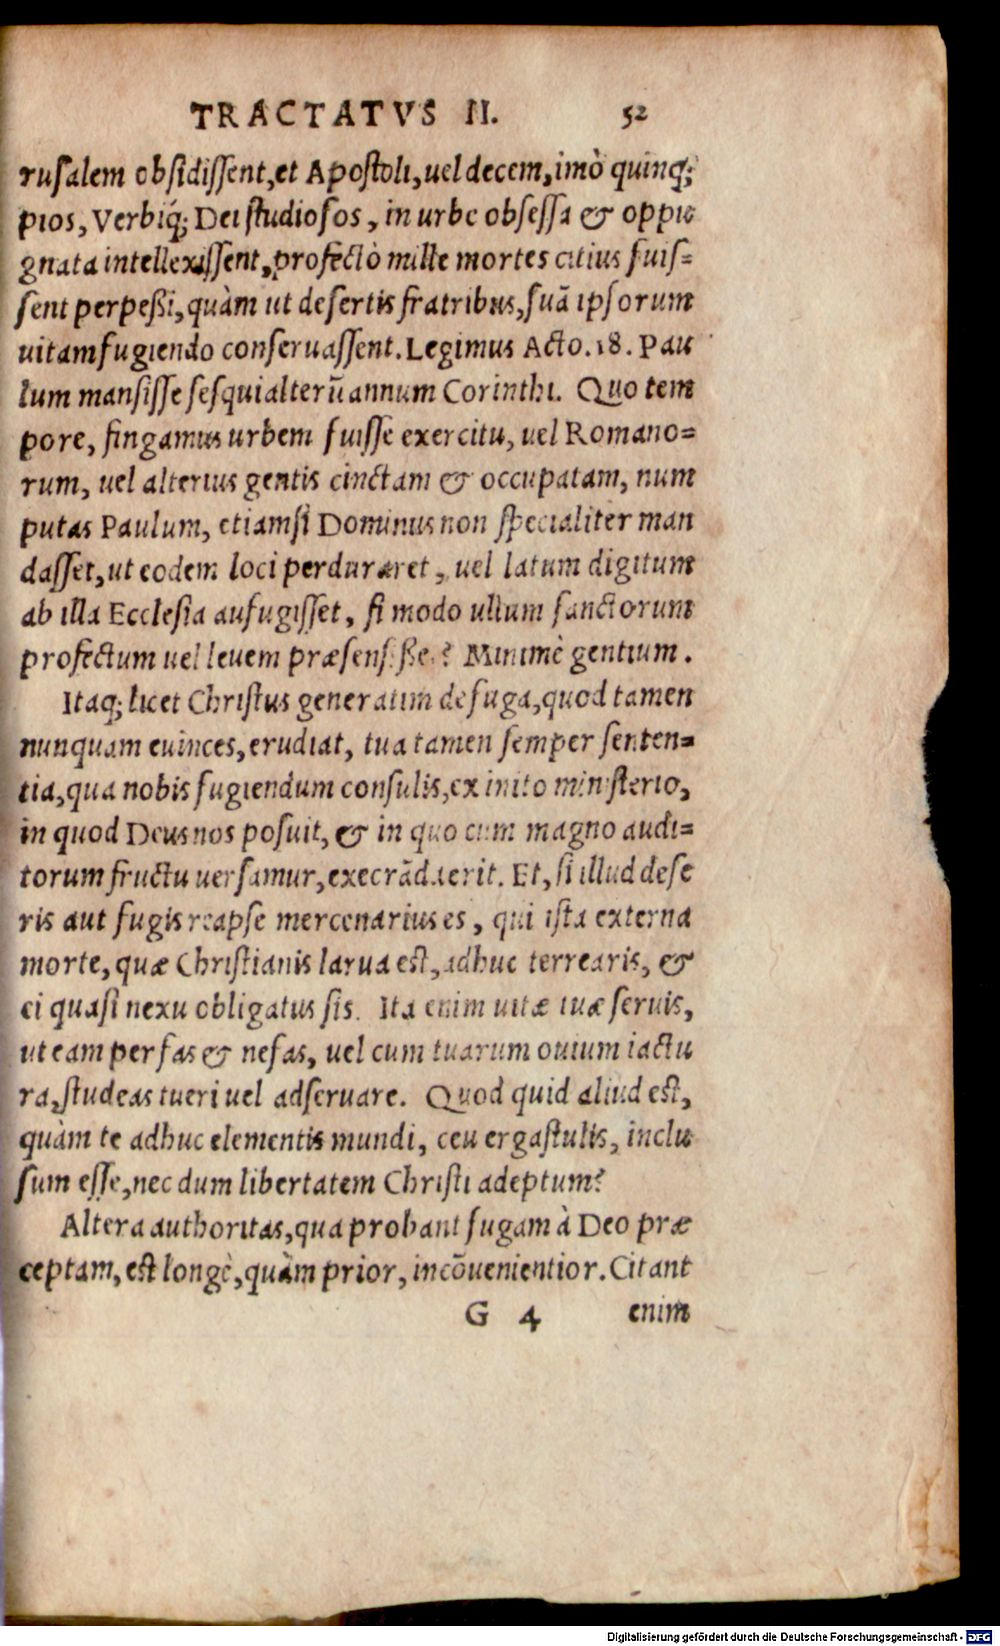 TRACTATVS II. 52
rusalem obsidissent, et Apostoli, uel decem, imò quinq;
pios, Verbiq́; Dei studiosos, in urbe obsessa & oppu
gnata intellexissent, profectò mille mortes citius fuis=
sent perpeßi, quàm ut desertis fratribus, suā ipsorum
uitam fugiendo conseruassent. Legimus Acto. 18. Pau
lum mansisse sesquialterū annum Corinthi. Quo tem
pore, fingamus urbem fuisse exercitu, uel Romano=
rum, uel alterius gentis cinctam & occupatam, num
putas Paulum, etiamsi Dominus non specialiter man
dasset, ut eodem loci perduraret, uel latum digitum
ab illa Ecclesia aufugisset, si modo ullum sanctorum
profectum uel leuem præsensißet? Minimè gentium.
Itaq; licet Christus generatim de fuga, quod tamen
nunquam euinces, erudiat, tua tamen semper senten=
tia, qua nobis fugiendum consulis, ex inito ministerio,
in quod Deus nos posuit, & in quo cum magno audi=
torum fructu uersamur, execrāda erit. Et, si illud dese
ris aut fugis reapse mercenarius es, qui ista externa
morte, quæ Christianis larua est, adhuc terrearis, &
ei quasi nexu obligatus sis. Ita enim uitæ tuæ seruis,
ut eam per fas & nefas, uel cum tuarum ouium iactu
ra, studeas tueri uel adseruare. Quod quid aliud est,
quàm te adhuc elementis mundi, ceu ergastulis, inclu
sum esse, nec dum libertatem Christi adeptum?
Altera authoritas, qua probant fugam à Deo præ
ceptam, est longè, quàm prior, incōuenientior. Citant
G 4 enim
Digitalisierung gefördert durch die Deutsche Forschungsgemeinschaft - DFG